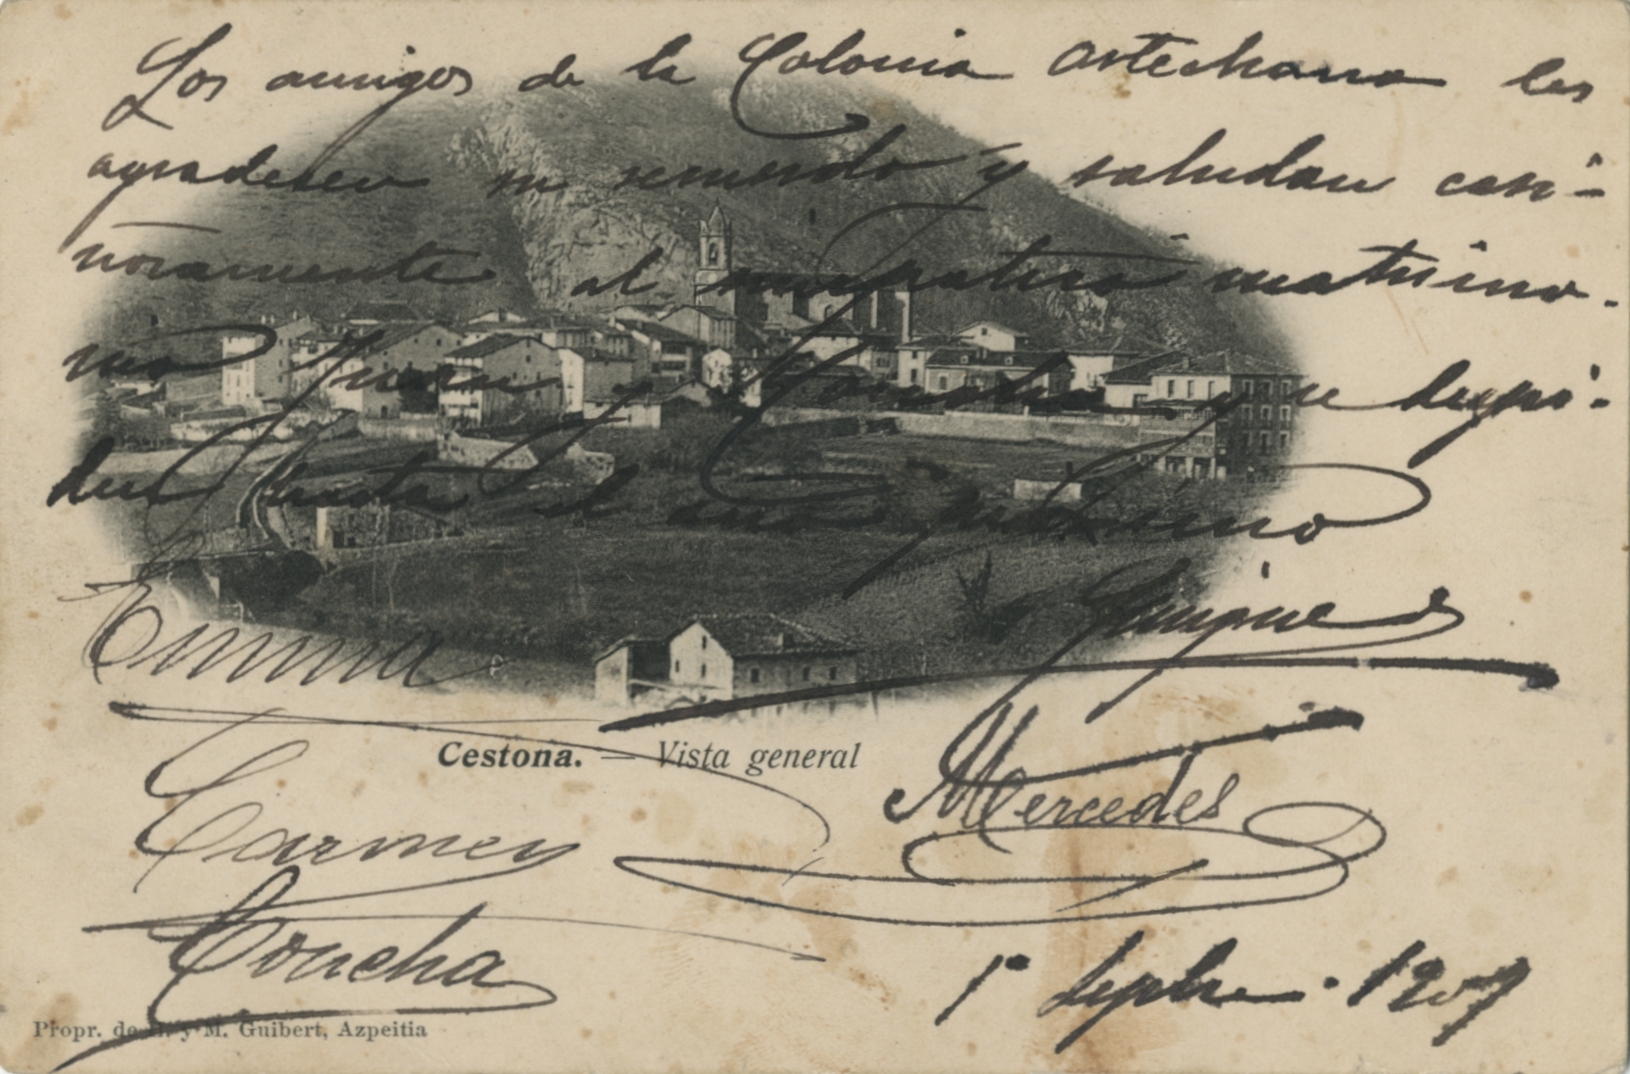 Los amigos de la Colonia artechana les
agradecen su recuerdo y saludan cari-
ñosamente al simpático matrimo-
nio Juan y y se despi-
den hasta el año próximo
Enrique
Emma
Cestona. — Vista general
Mercedes
Carmen
Concha
1º Septbre. 1907
Propr. de H. y M. Guibert, Azpeitia